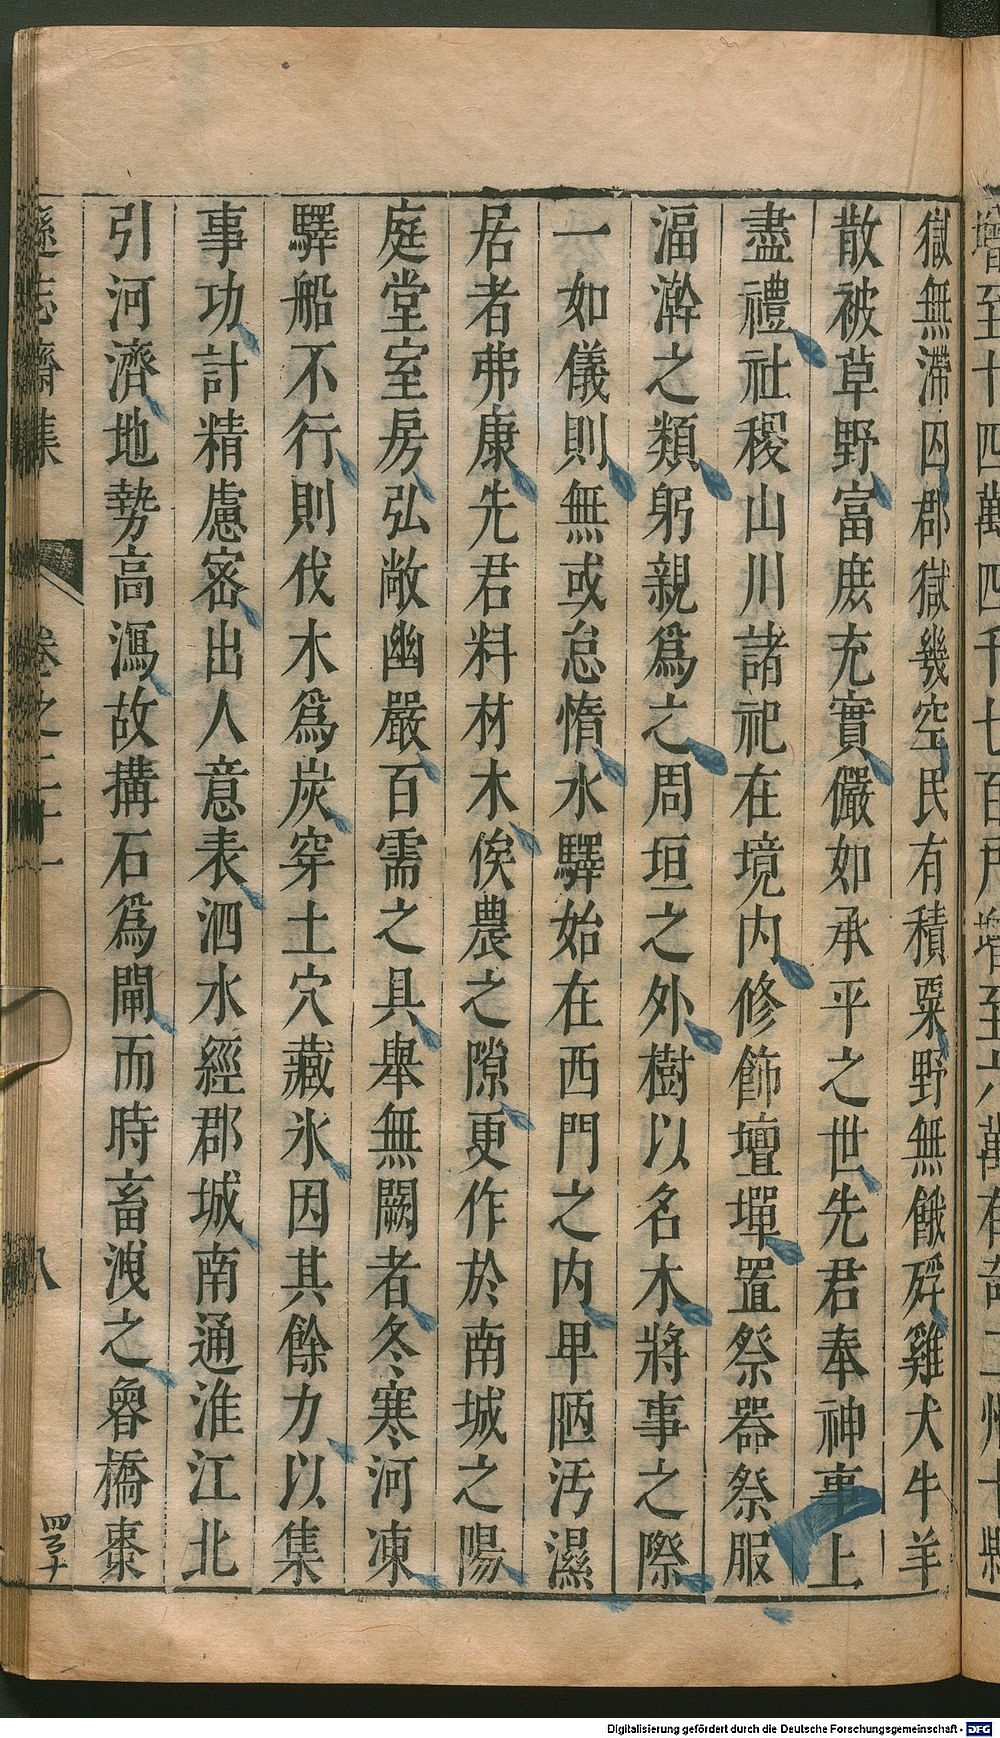 獄無滯囚郡獄幾空民有積粟野無餓殍雞犬牛羊
散被草野富庶充實儼如承平之世先君奉神事上
盡禮社稷山川諸祀在境内修飾壇墠置祭器祭服
湢澣之類躬親爲之周垣之外樹以名木將事之際
一如儀則無或怠惰水驛始在西門之内卑陋汚濕
居者弗康先君料材木俟農之隙更作於南城之陽
庭堂室房弘敞幽嚴百需之具舉無闕者冬寒河凍
驛船不行則伐木爲炭穿土穴藏氷因其餘力以集
事功計精慮密出人意表泗水經郡城南通淮江北
引河濟地勢高瀉故搆石爲閘而時畜洩之魯橋棗
遜志齋集
卷之二十一
八
Digitalisierung gefördert durch die Deutsche Forschungsgemeinschaft - DFG